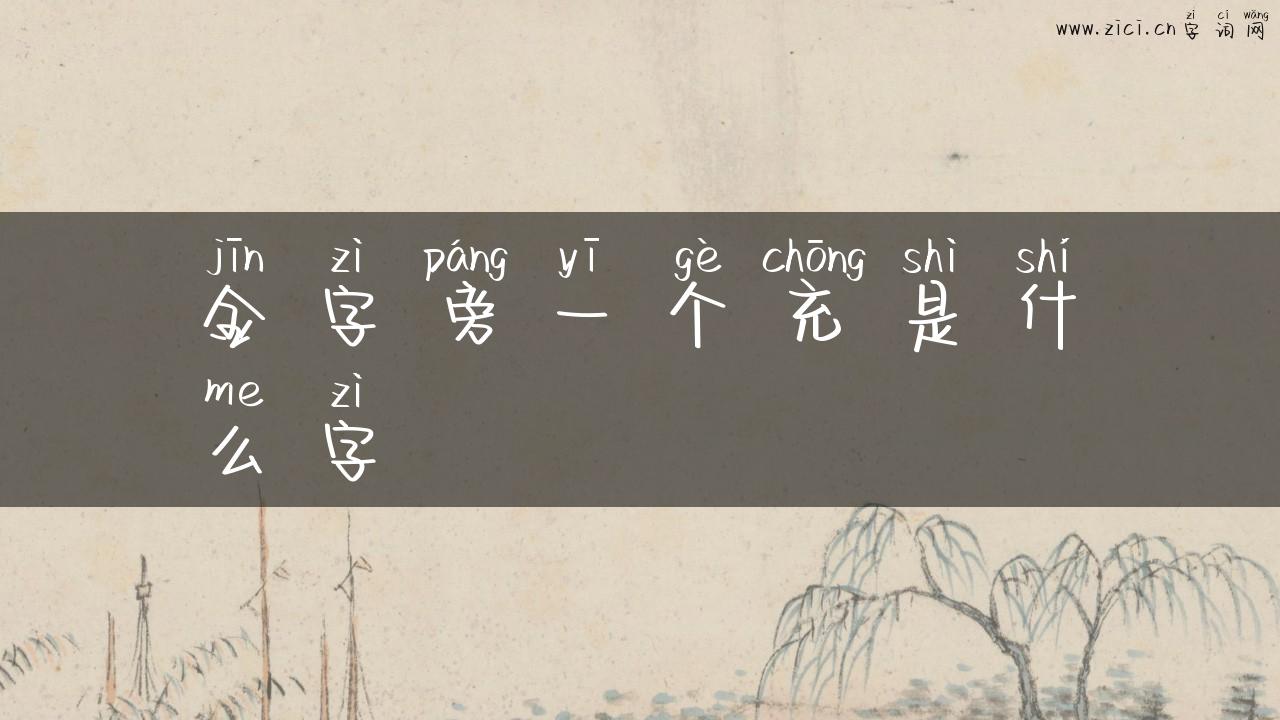 zì cí wǎng
www.zici.cn 字词网
jīn zì páng yī gè chōng shì shí
金字旁一个充是什
me zì
么字